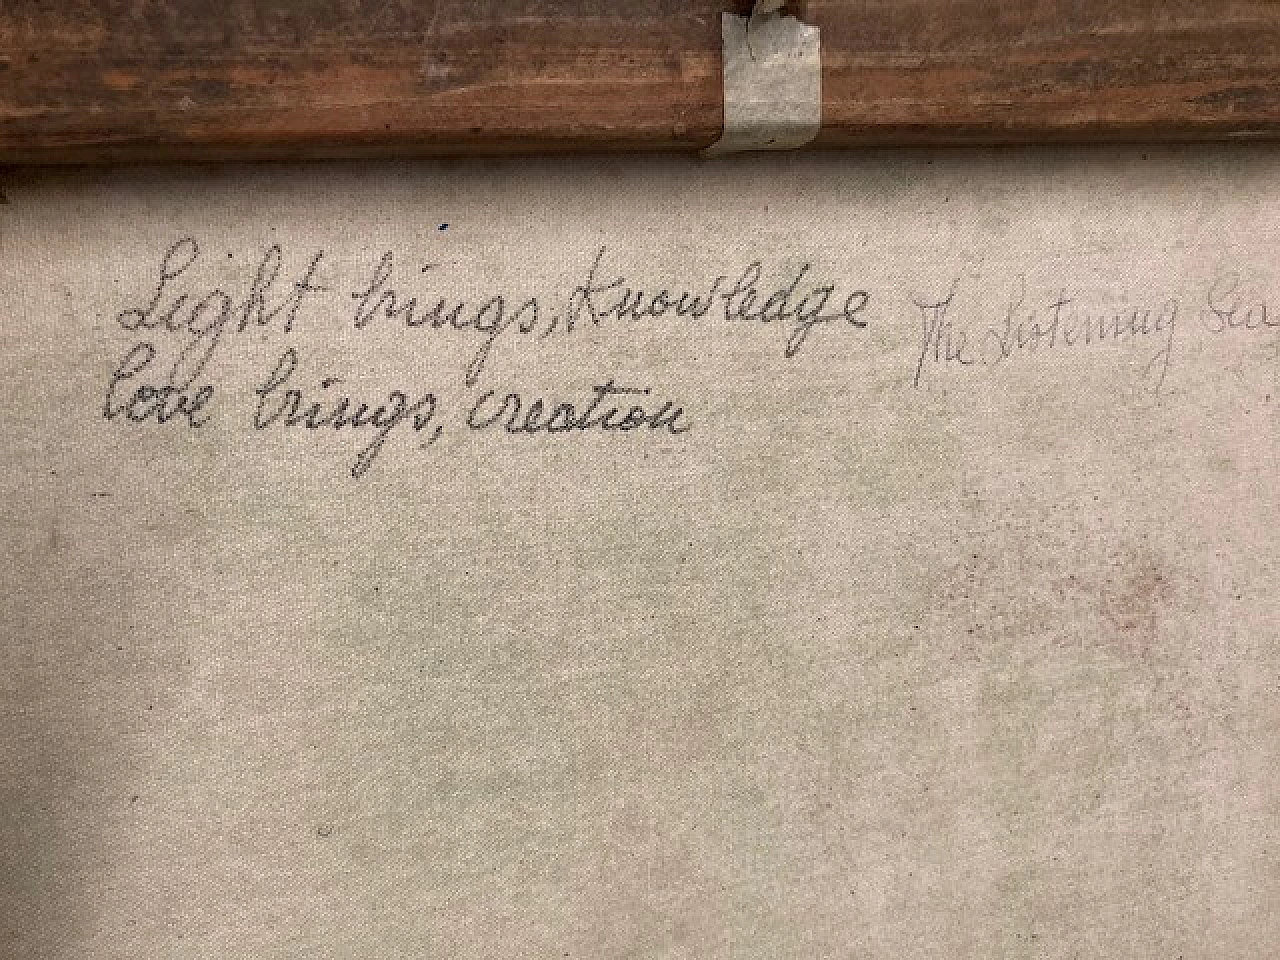 Light brings, knowledge
love brings, creation
The Listening